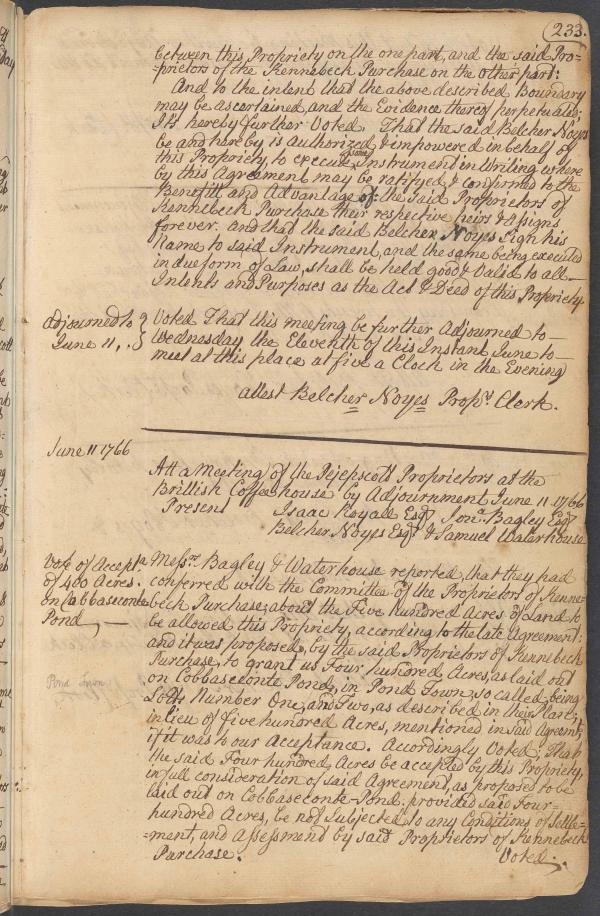 233.
between this Propriety on the one part, and the said Pro=
=prietors of the Kennebeck Purchase on the other part:
And to the intent that the above described Boundary
may be ascertained, and the Evidence thereof perpetuated;
It's hereby further Voted. That the said Belcher Noyes
be and hereby is authorized, & impowered in behalf of
this Propriety, to execute some Instrument in Writing where
by this Agreement may be ratifyed & confirmed to the
Benefitt and Advantage of the said Proprietors of
Kennebeck Purchase their respective heirs & Assigns
forever. And that the said Belcher Noyes Sign his
Name to said Instrument, and the same being executed
in due form of Law, shall be held good & Valid to all
Intents and Purposes as the Act & Deed of this Propriety.
Adjourned to
June 11.
Voted That this meeting be further Adjourned to
Wednesday the Eleventh of this Instant June to
meet at this place at five a Clock in the Evening
attest Belcher Noyes Propr. Clerk.
June 11 1766
Att a Meeting of the Pejepscott Proprietors at the
Brittish Coffeehouse by Adjournment June 11. 1766
Present Isaac Royall Esqr Jona. Bagley Esqr
Belcher Noyes Esqr & Samuel Waterhouse
Vote of Accepta
of 400 Acres.
on Cobbaseconte
Pond,
Messrs. Bagley & Waterhouse reported, that they had
conferred with the Committee of the Proprietors of Kenne=
beck Purchase, about the Five hundred Acres of Land to
be allowed this Propriety, according to the late Agreement:
and it was proposed, by the said Proprietors of Kennebeck
Purchase, to grant us Four hundred Acres, as laid out
on Cobbaseconte Pond, in Pond Town, so called, being
Lotts Number One, and Two, as described in their Plan;
in lieu of five hundred Acres, mentioned in said Agreemt,
if it was to our Acceptance. Accordingly Voted, That
the said Four hundred Acres be accepted by this Propriety,
in full consideration of said Agreement, as proposed to be
laid out on Cobbaseconte Pond. provided said Four=
hundred Acres, be not Subjected to any Conditions of Settle=
=ment, and Assessment by said Proprietors of Kennebeck
Purchase.
Voted
Pond Town